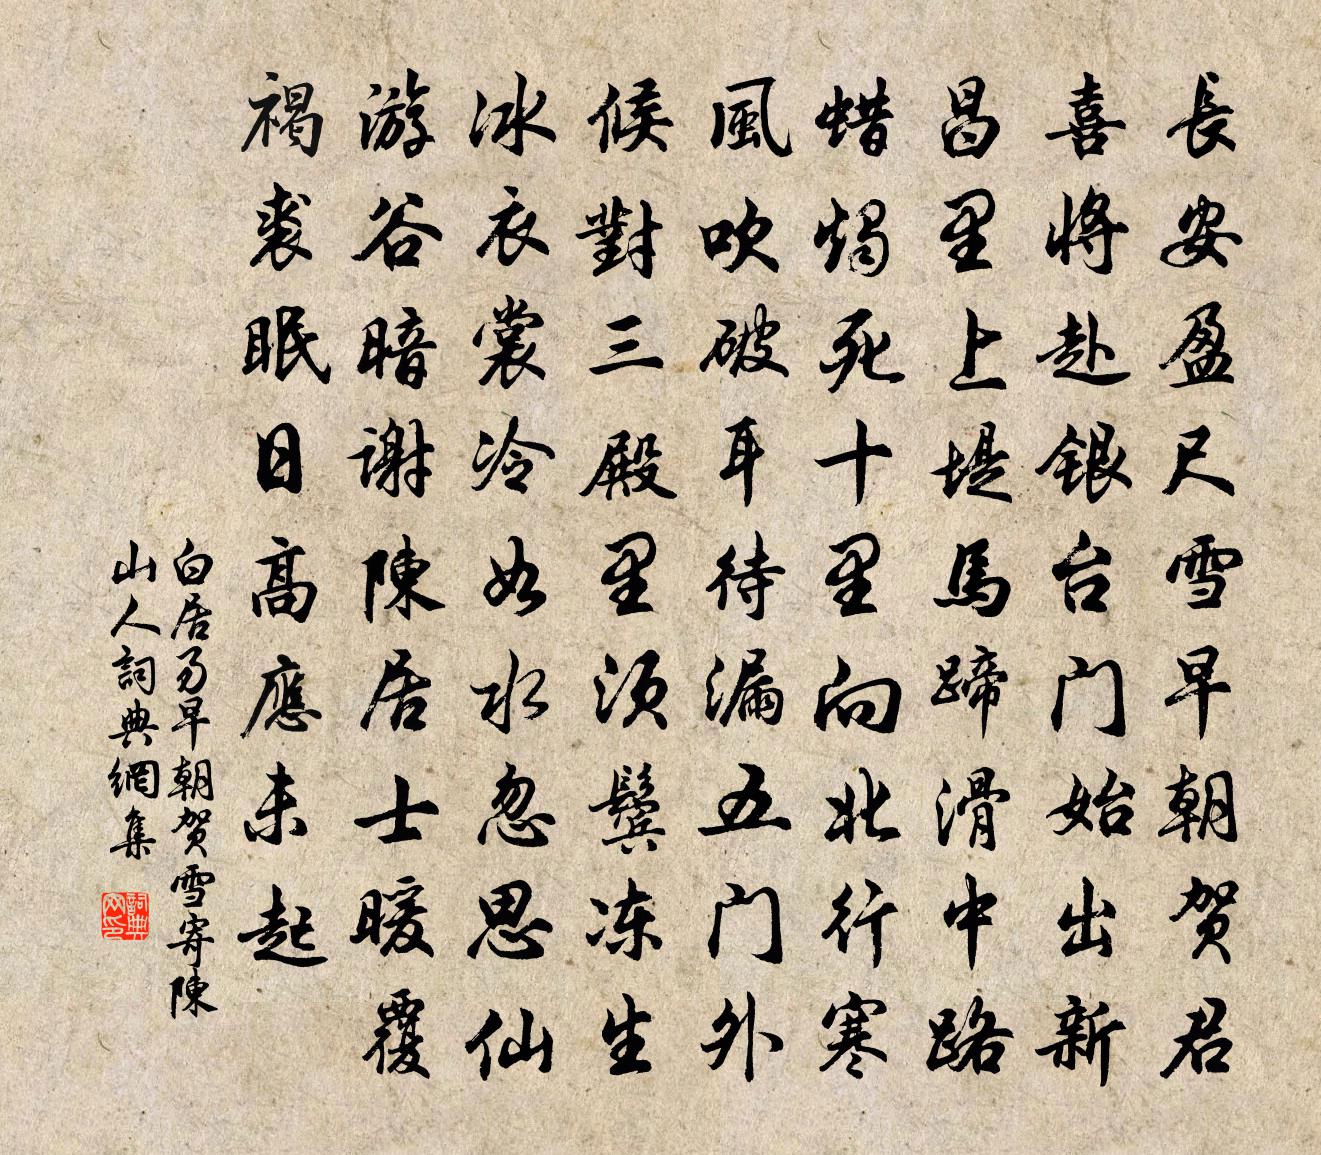 長安盈尺雪早朝贺君
喜将赴銀台门始出新
昌里上堤馬蹄滑中路
蜡燭死十里向北行寒
風吹破耳待漏五门外
候對三殿里须鬓冻生
冰衣裳冷如水忽思仙
游谷暗謝陳居士暖覆
褐裘眠日高應未起
白居易早朝贺雪寄陳
山人詞典網集
詞典网印